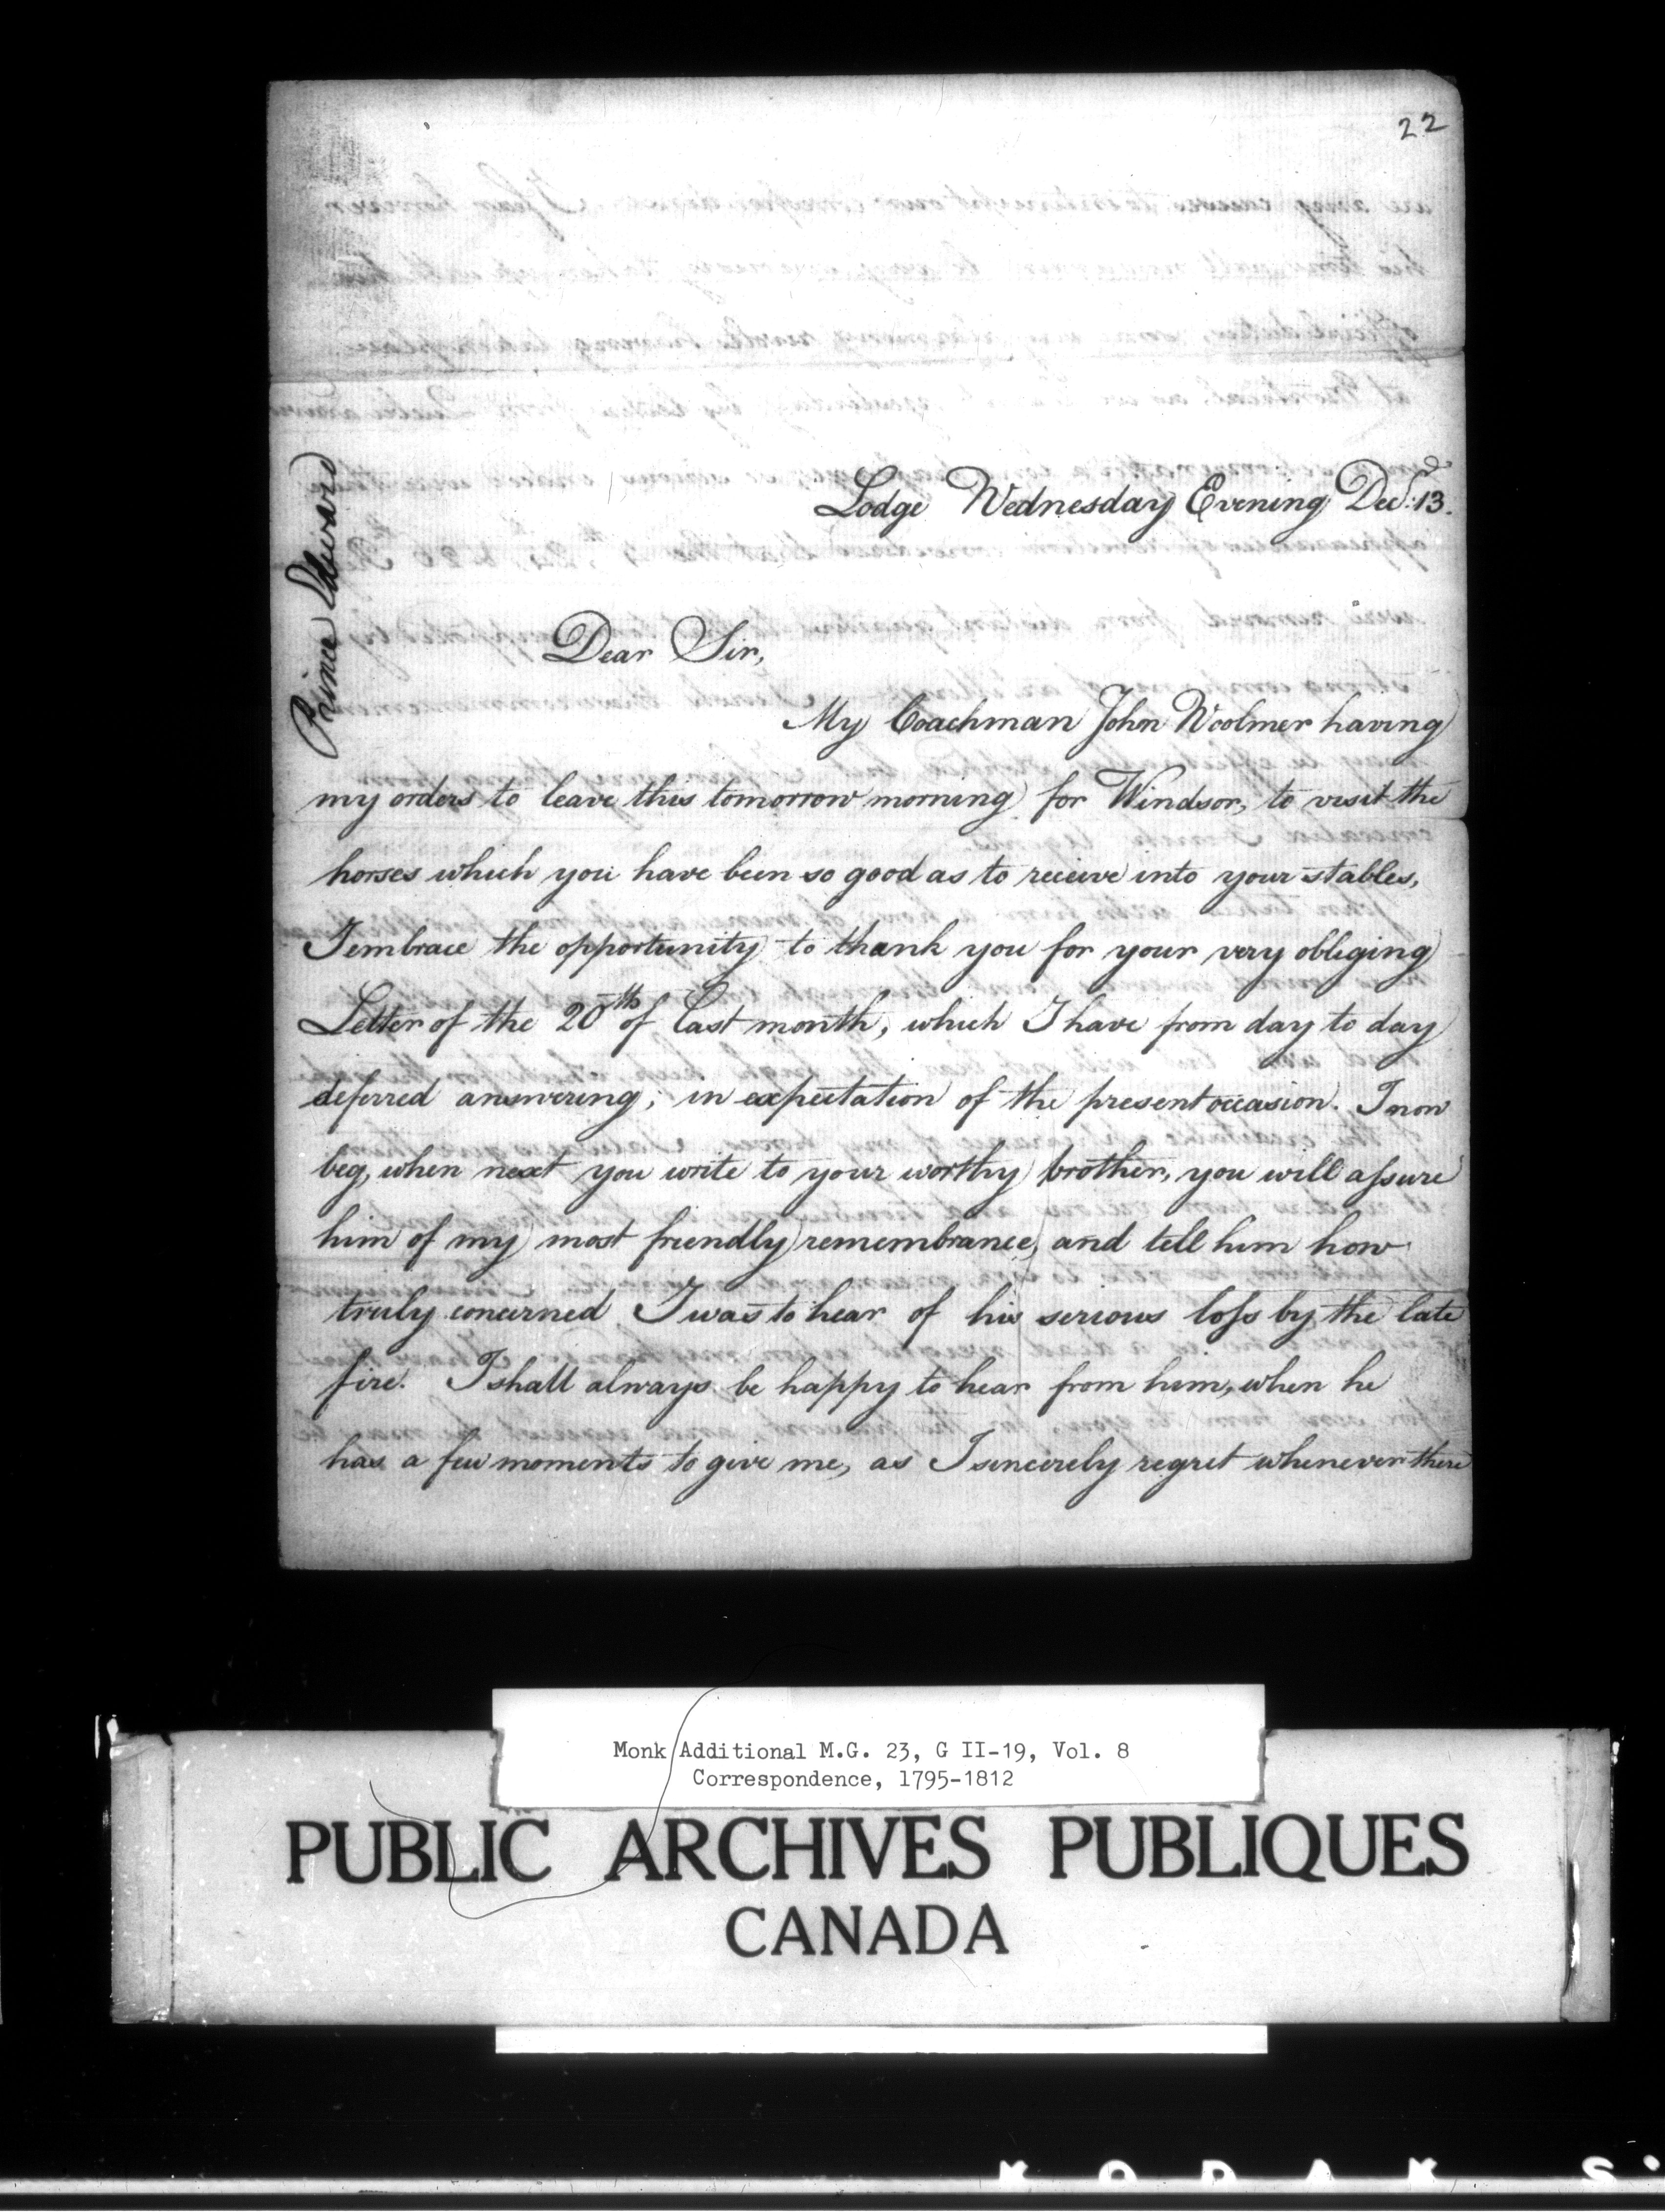 22
Prince Edward
Lodge Wednesday Evening Decr. 13.
Dear Sir,
My Coachman John Woolmer having
my orders to leave this tomorrow morning for Windsor, to visit the
horses which you have been so good as to receive into your stables,
I embrace the opportunity to thank you for your very obliging
Letter of the 20th of last month, which I have from day to day
deferred answering, in expectation of the present occasion. I now
beg, when next you write to your worthy brother, you will assure
him of my most friendly remembrance, and tell him how
truly concerned I was to hear of his serious loss by the late
fire. I shall always be happy to hear from him, when he
has a few moments to give me, as I sincerely regret whenever there
Monk Additional M.G. 23, G II-19, Vol. 8
Correspondence, 1795-1812
PUBLIC ARCHIVES PUBLIQUES
CANADA